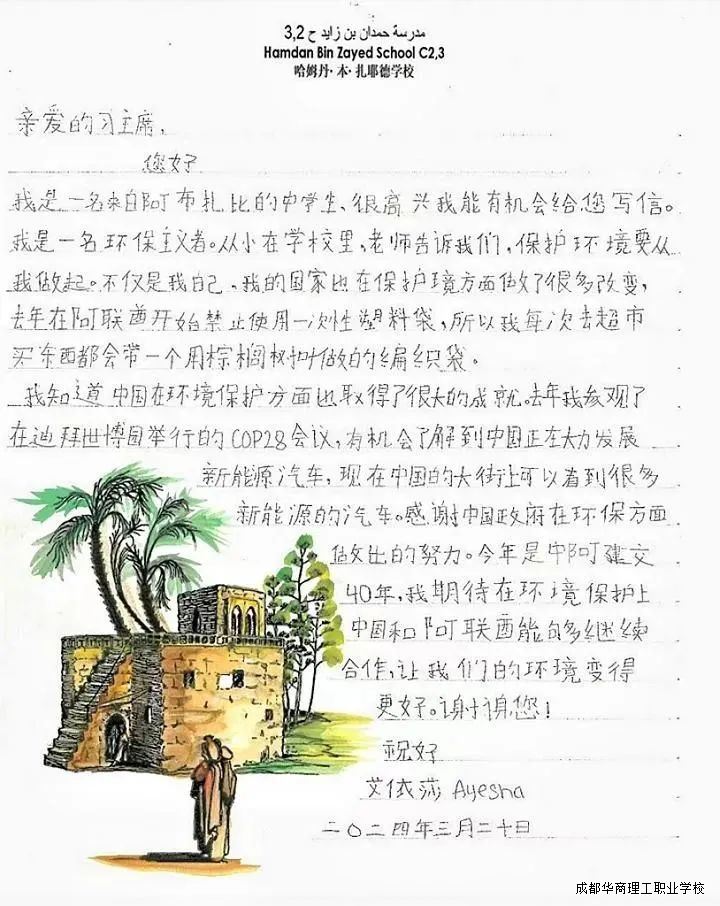 مدرسة حمدان بن زايد ح 3,2
Hamdan Bin Zayed School C2,3
哈姆丹·本·扎耶德学校
亲爱的习主席,
您好
我是一名来自阿布扎比的中学生、很高兴我能有机会给您写信。
我是一名环保主义者。从小在学校里,老师告诉我们,保护环境要从
我做起。不仅是我自己,我的国家也在保护环境方面做了很多改变,
去年在阿联酋开始禁止使用一次性塑料袋,所以我每次去超市
买东西都会带一个用棕榈树叶做的编织袋。
我知道中国在环境保护方面也取得了很大的成就。去年我参观了
在迪拜世博园举行的COP28会议,有机会了解到中国正在大力发展
新能源汽车,现在中国的大街上可以看到很多
新能源的汽车。感谢中国政府在环保方面
做出的努力。今年是中阿建交
40年,我期待在环境保护上
中国和阿联酋能够多继续
合作,让我们的环境变得
更好。谢谢您!
祝好
艾依莎 Ayesha
二〇二四年三月二十日
成都华商理工职业学校